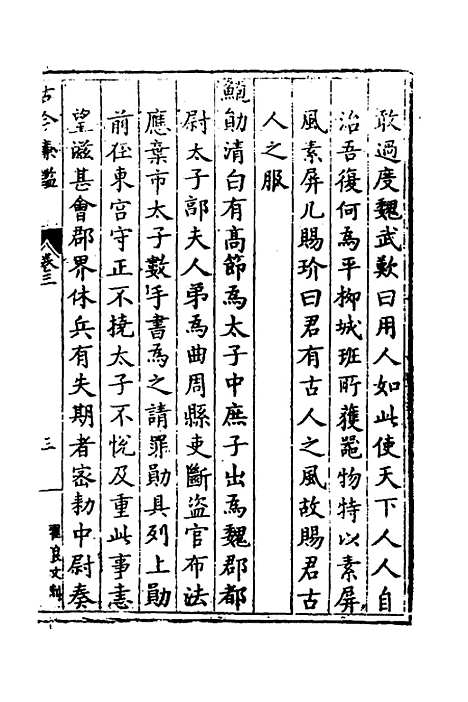 敢過度魏武歎曰用人如此使天下人人自
治吾復何爲平柳城班所獲器物特以素屏
風素屏几賜玠曰君有古人之風故賜君古
人之服
鮑勛清白有高節爲太子中庶子出爲魏郡都
尉太子郭夫人弟爲曲周縣吏斷盜官布法
應棄市太子數手書爲之請罪勛具列上勛
前在東宮守正不撓太子不悅及重此事恚
望滋甚會郡界休兵有失期者密勑中尉奏
古今廉鑑
卷三
三
翟良才刊